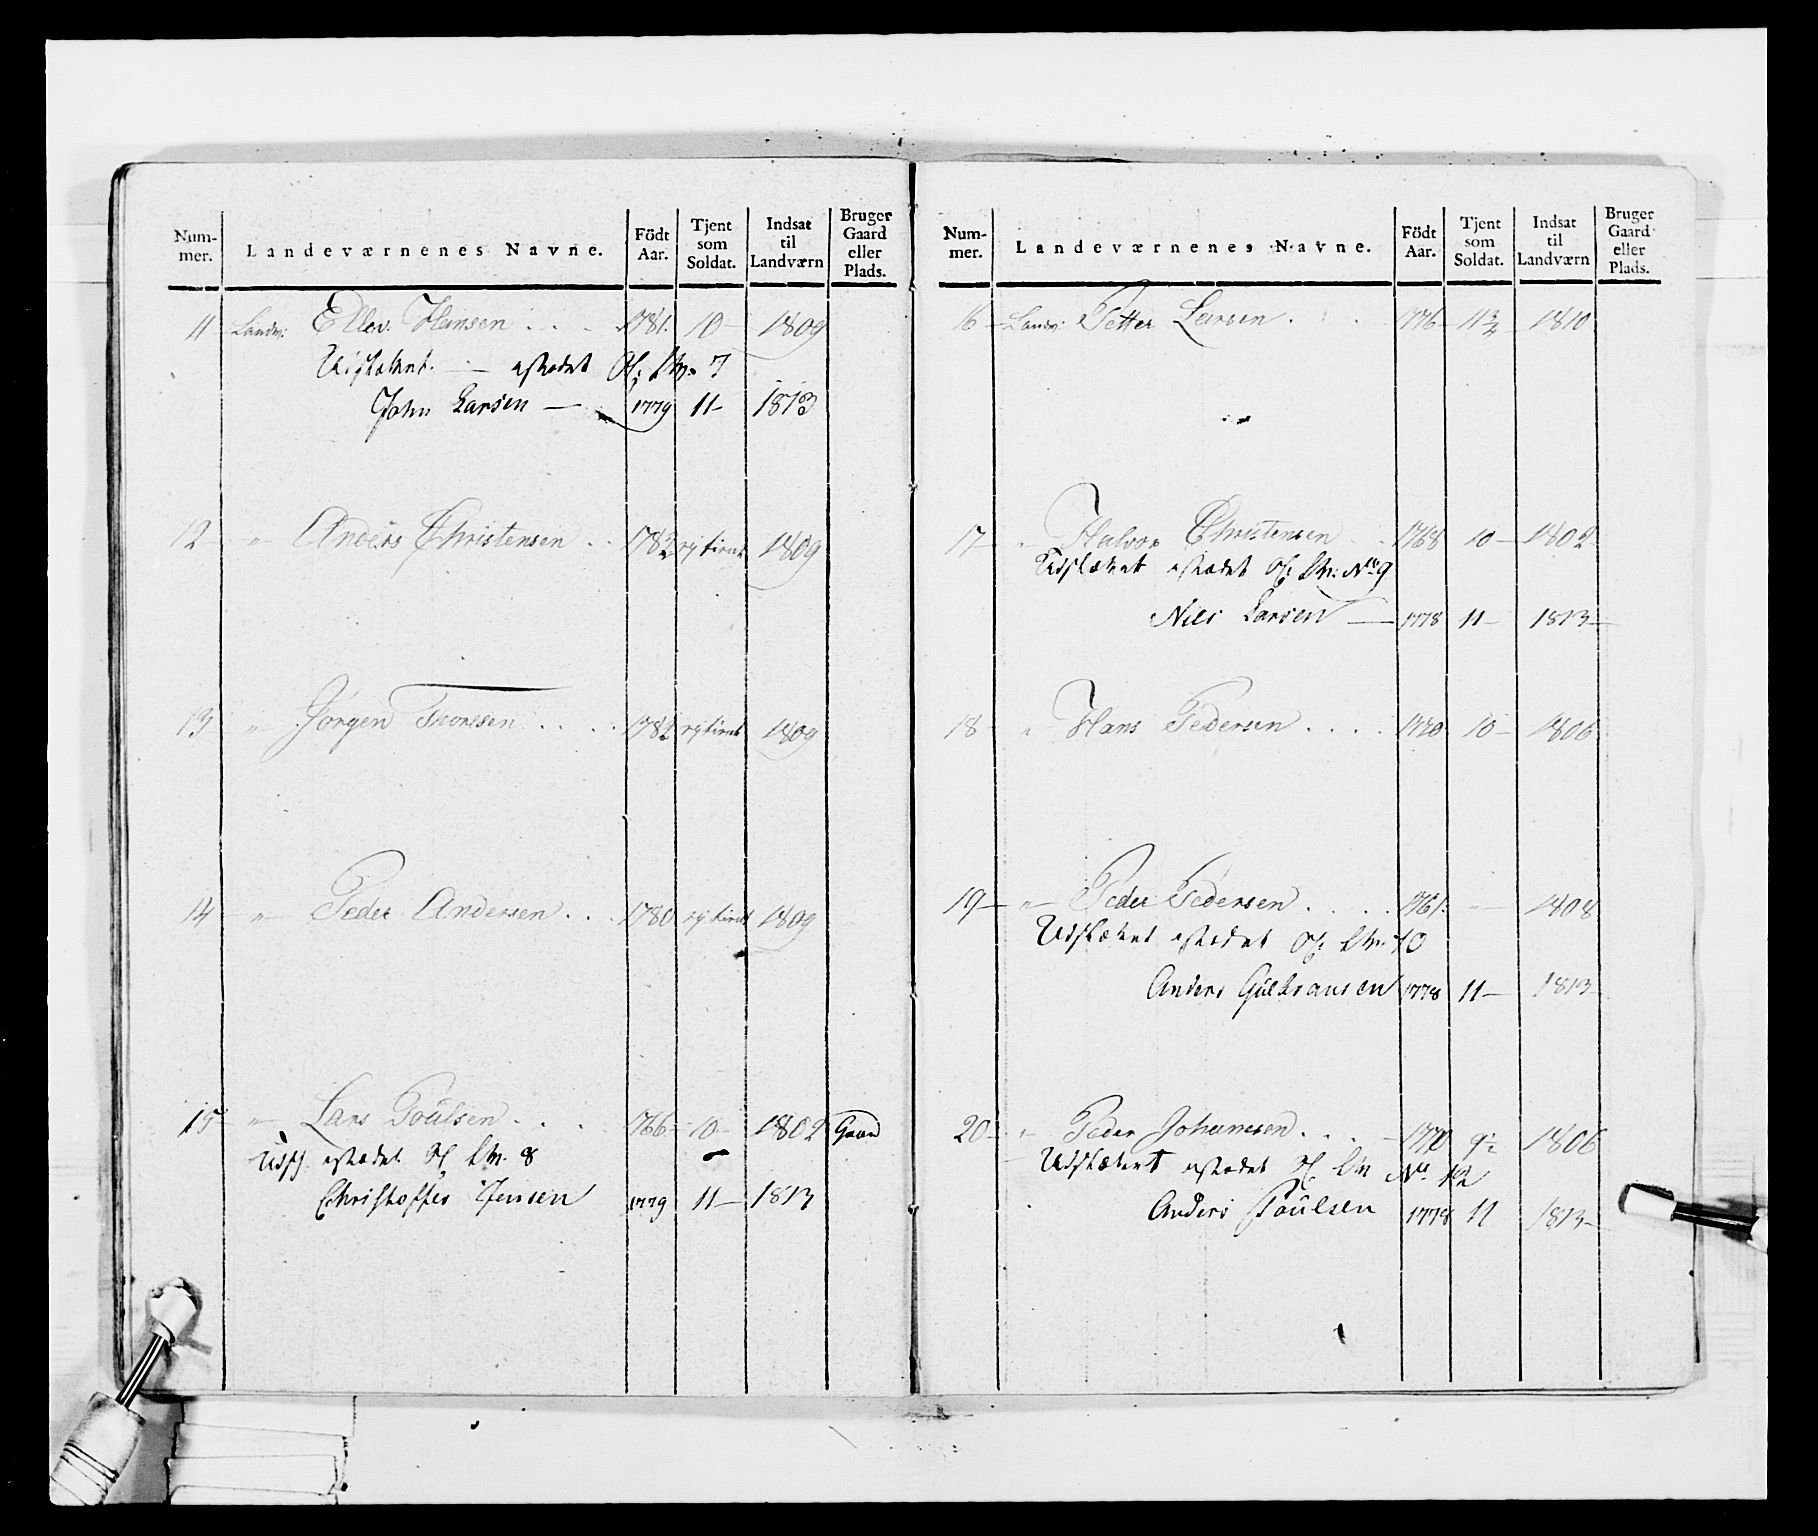 Num-mer. Landeværnenes Navne. Födt Aar. Tjent som Soldat. Indsat til Landværn Bruger Gaard eller Plads.
11 Landv: Ellev Hansen . . . 1781. 10 — 1809
Udslættet — astedet Lw. 7
John Larsen — 1779 11 — 1813
12 — " — Anders Christensen . . 1809
13 " Jörgen Thoresen . . . . 1809
14 — " — Peder Andersen . . . 1780 1809
15 — " — Lars Poülsen . . . . 1766 — 10 — 1802 Gaard
Udsl. Lw. 8
Christoffer Jensen 1779 11 — 1813
Num-mer. Landeværnenes Navne. Födt Aar. Tjent som Soldat. Indsat til Landværn Bruger Gaard eller Plads.
16 — Landv: Petter Larsen . . . 1776 11 3/4 1810
17 — " Halvor Christensen . . 1768 10 — 1802
Udslættet Lw: No 9
Niels Larsen — 1778 11 — 1813 —
18 — " Hans Pedersen . . . . 1770 10 — 1806
19 — " — Peder Pedersen . . . . 1761. — " — 1808
Udslættet Lw. 10
Anders Gülbransen 1778 11 — 1813 —
20 — " Peder Johannesen . . . — 1770 9 1/2 1806
Udslættet Lw No. 12
Anders Poülsen 1778 11 1813 —